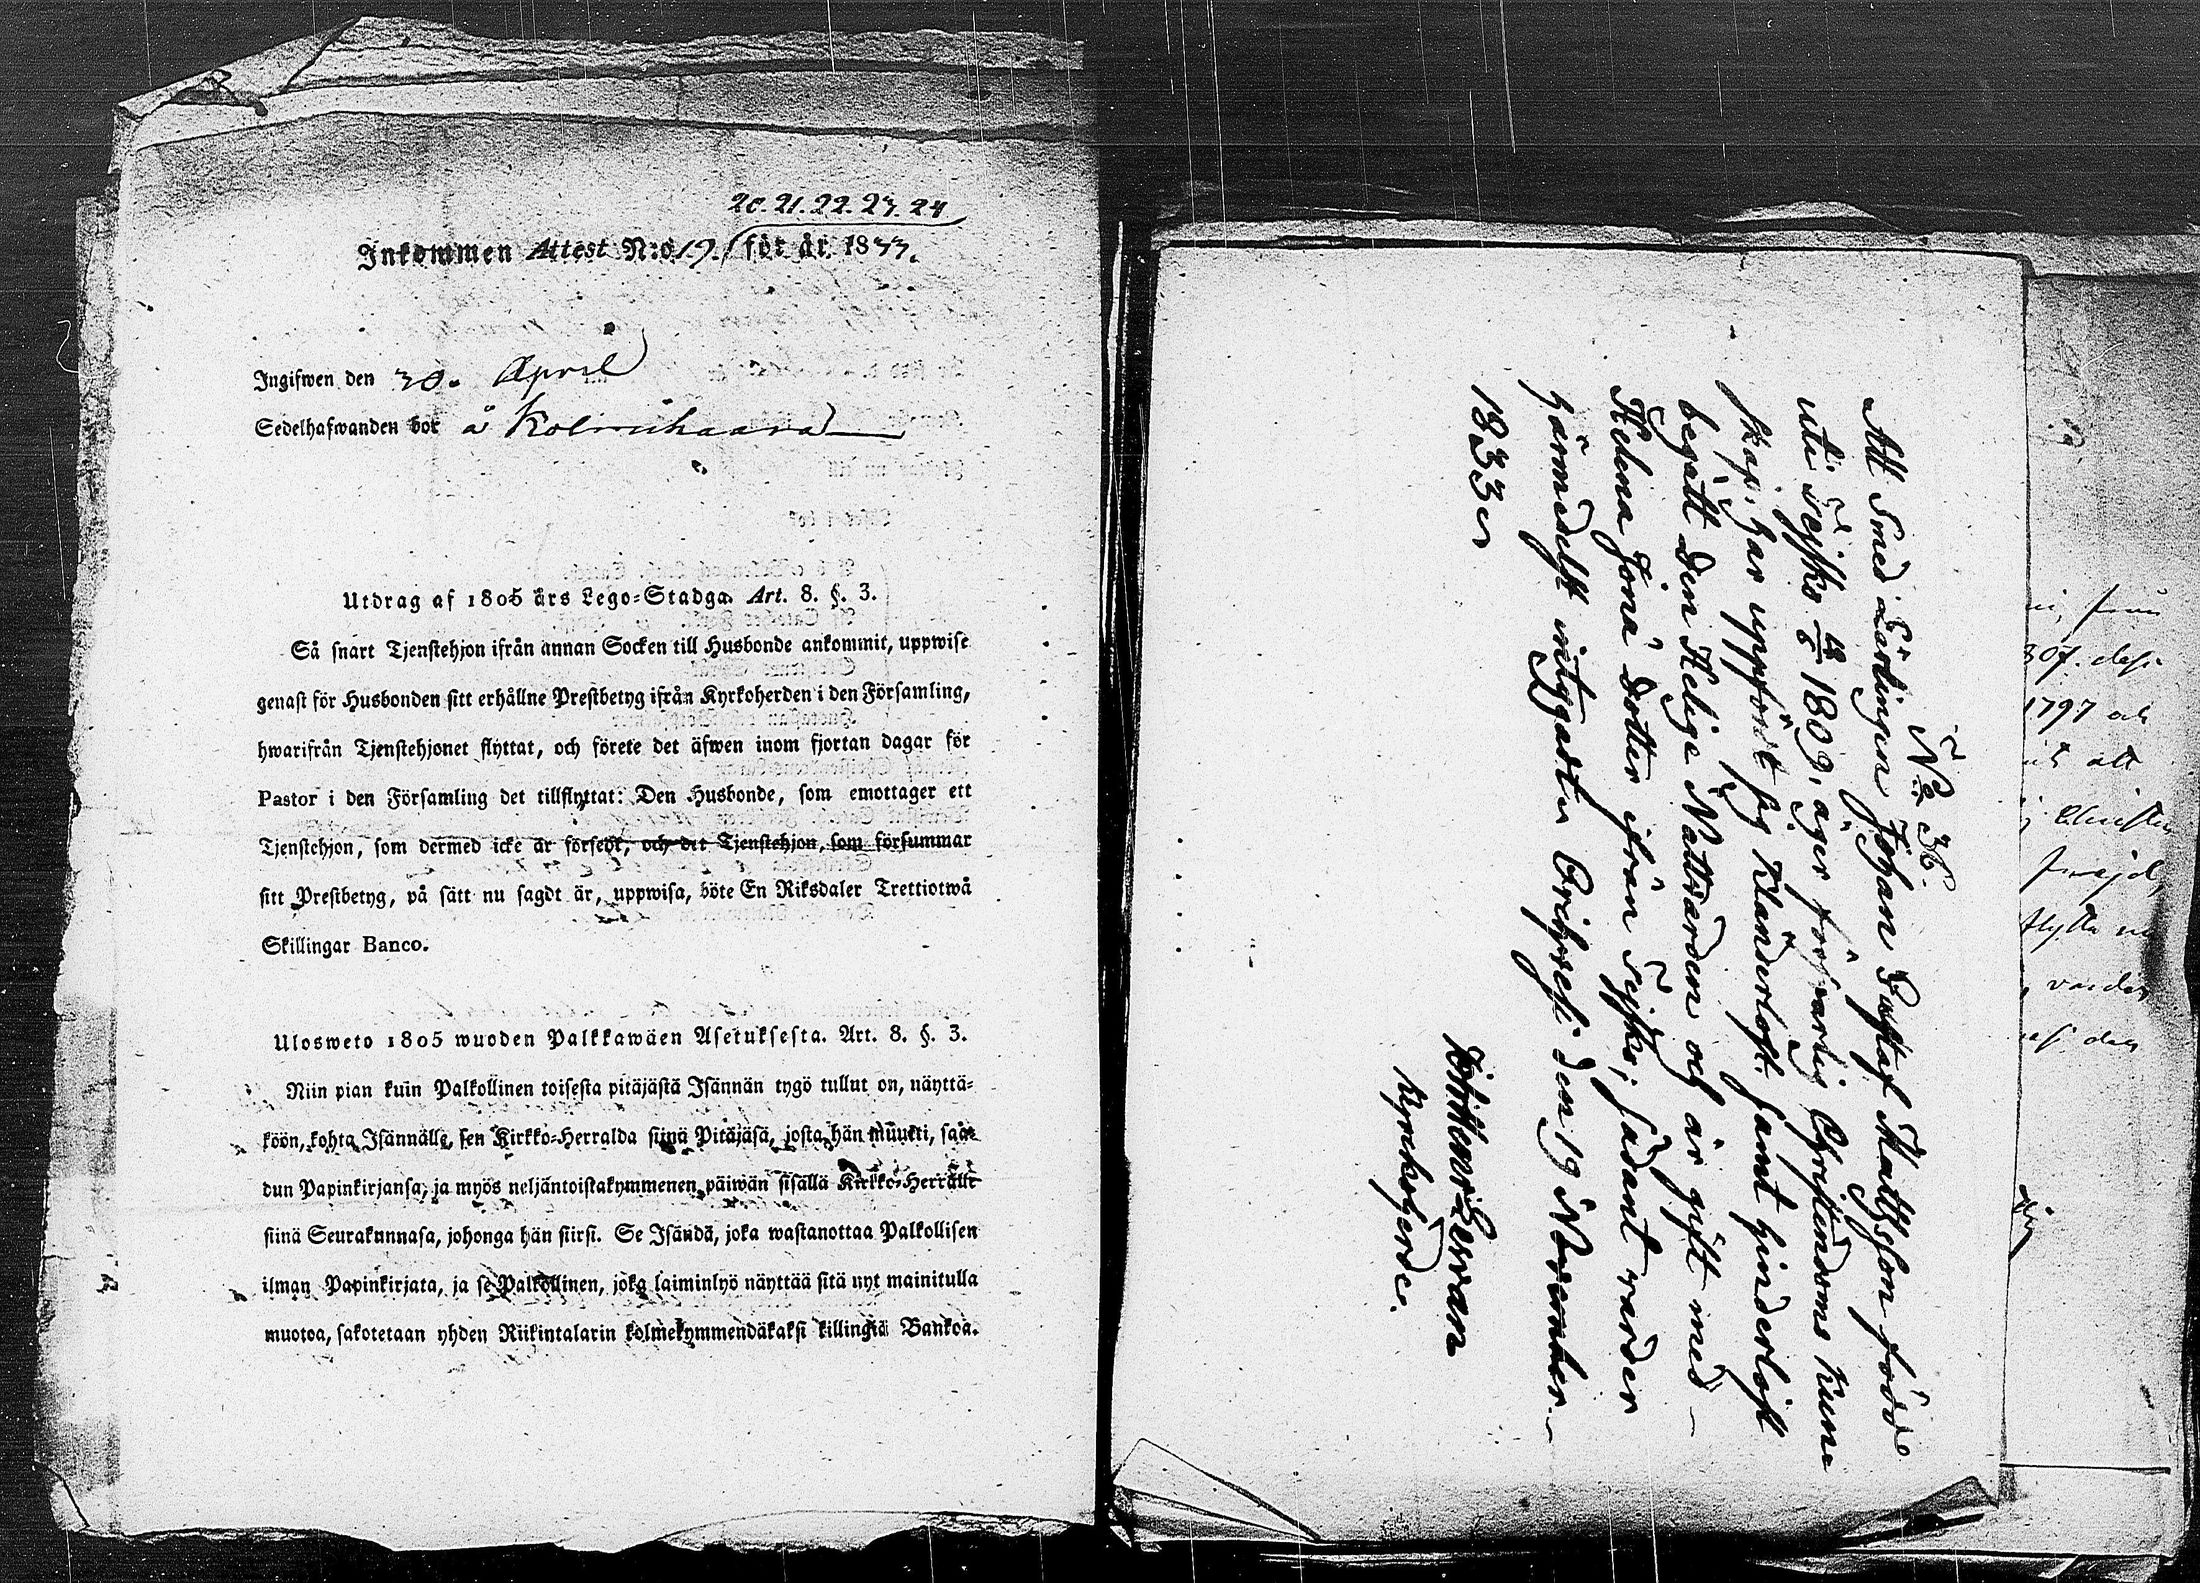 20. 21. 22. 23. 24
Inkommen Attest N:o 19. för år 1833.
Ingifwen den 30. April
Sedelhafwanden bor å Kolmihaara
Utdrag af 1805 års Lego-Stadga. Art. 8. §. 3.
Så snart Tjenstehjon ifrån annan Socken till Husbonde ankommit, uppwise
genast för Husbonden sitt erhållne Prestbetyg ifrån Kyrkoherden i den Församling,
hwarifrån Tjenstehjonet flyttat, och förete det äfwen inom fjortan dagar för
Pastor i den Församling det tillflyttat: Den Husbonde, som emottager ett
Tjenstehjon, som dermed icke är försedt, och det Tjenstehjon, som försummar
sitt Prestbetyg, på sätt nu sagdt är, uppwisa, böte En Riksdaler Trettiotwå
Skillingar Banco.
Ulosweto 1805 wuoden Palkkawäen Asetuksesta. Art. 8. §. 3.
Niin pian kuin Palkollinen toisesta pitäjästä Isännän tygö tullut on, näyttä-
köön, kohta Isännälle, sen Kirkko-Herralda siinä Pitäjäsä, josta hän muutti, saa-
dun Papinkirjansa, ja myös neljäntoistakymmenen päiwän sisällä Kirkko-Herralle
siinä Seurakunnasa, johonga hän siirsi. Se Isändä, joka wastanottaa Palkollisen
ilman Papinkirjata, ja se Palkollinen, joka laiminlyö näyttää sitä nyt mainitulla
muotoa, sakotetaan yhden Riikintalarin kolmekymmendäkaksi killingiä Bankoa.
No 36.
Att Smed Lärlingen Johan Gustaf Mattsson född
uti Tyfskö 1809, äger försvarlig Christendoms kun
skap, har uppfördt sig klanderlöst samt hinderlöst
begått den Helige Nattvarden och är gift med
Helena Jona dotter ifrån Tyfskö; sådant varder
härmedelst intygadt Brihyseli den 19 November
1833
Kyrkoherde.
307. dess
1797 och
att
Christen
frejd,
flytta
varder
den